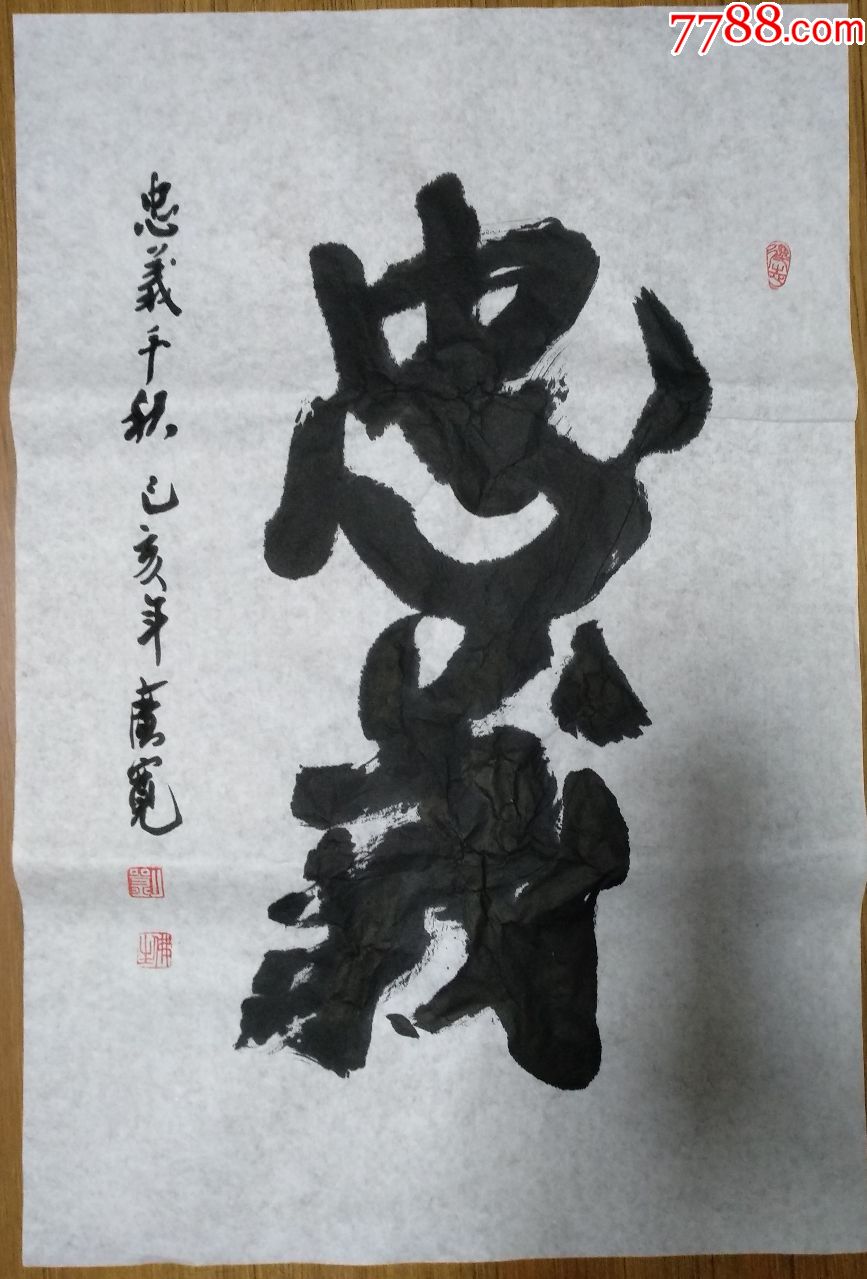 7788.com
忠義
忠義千秋 己亥年 廣寬